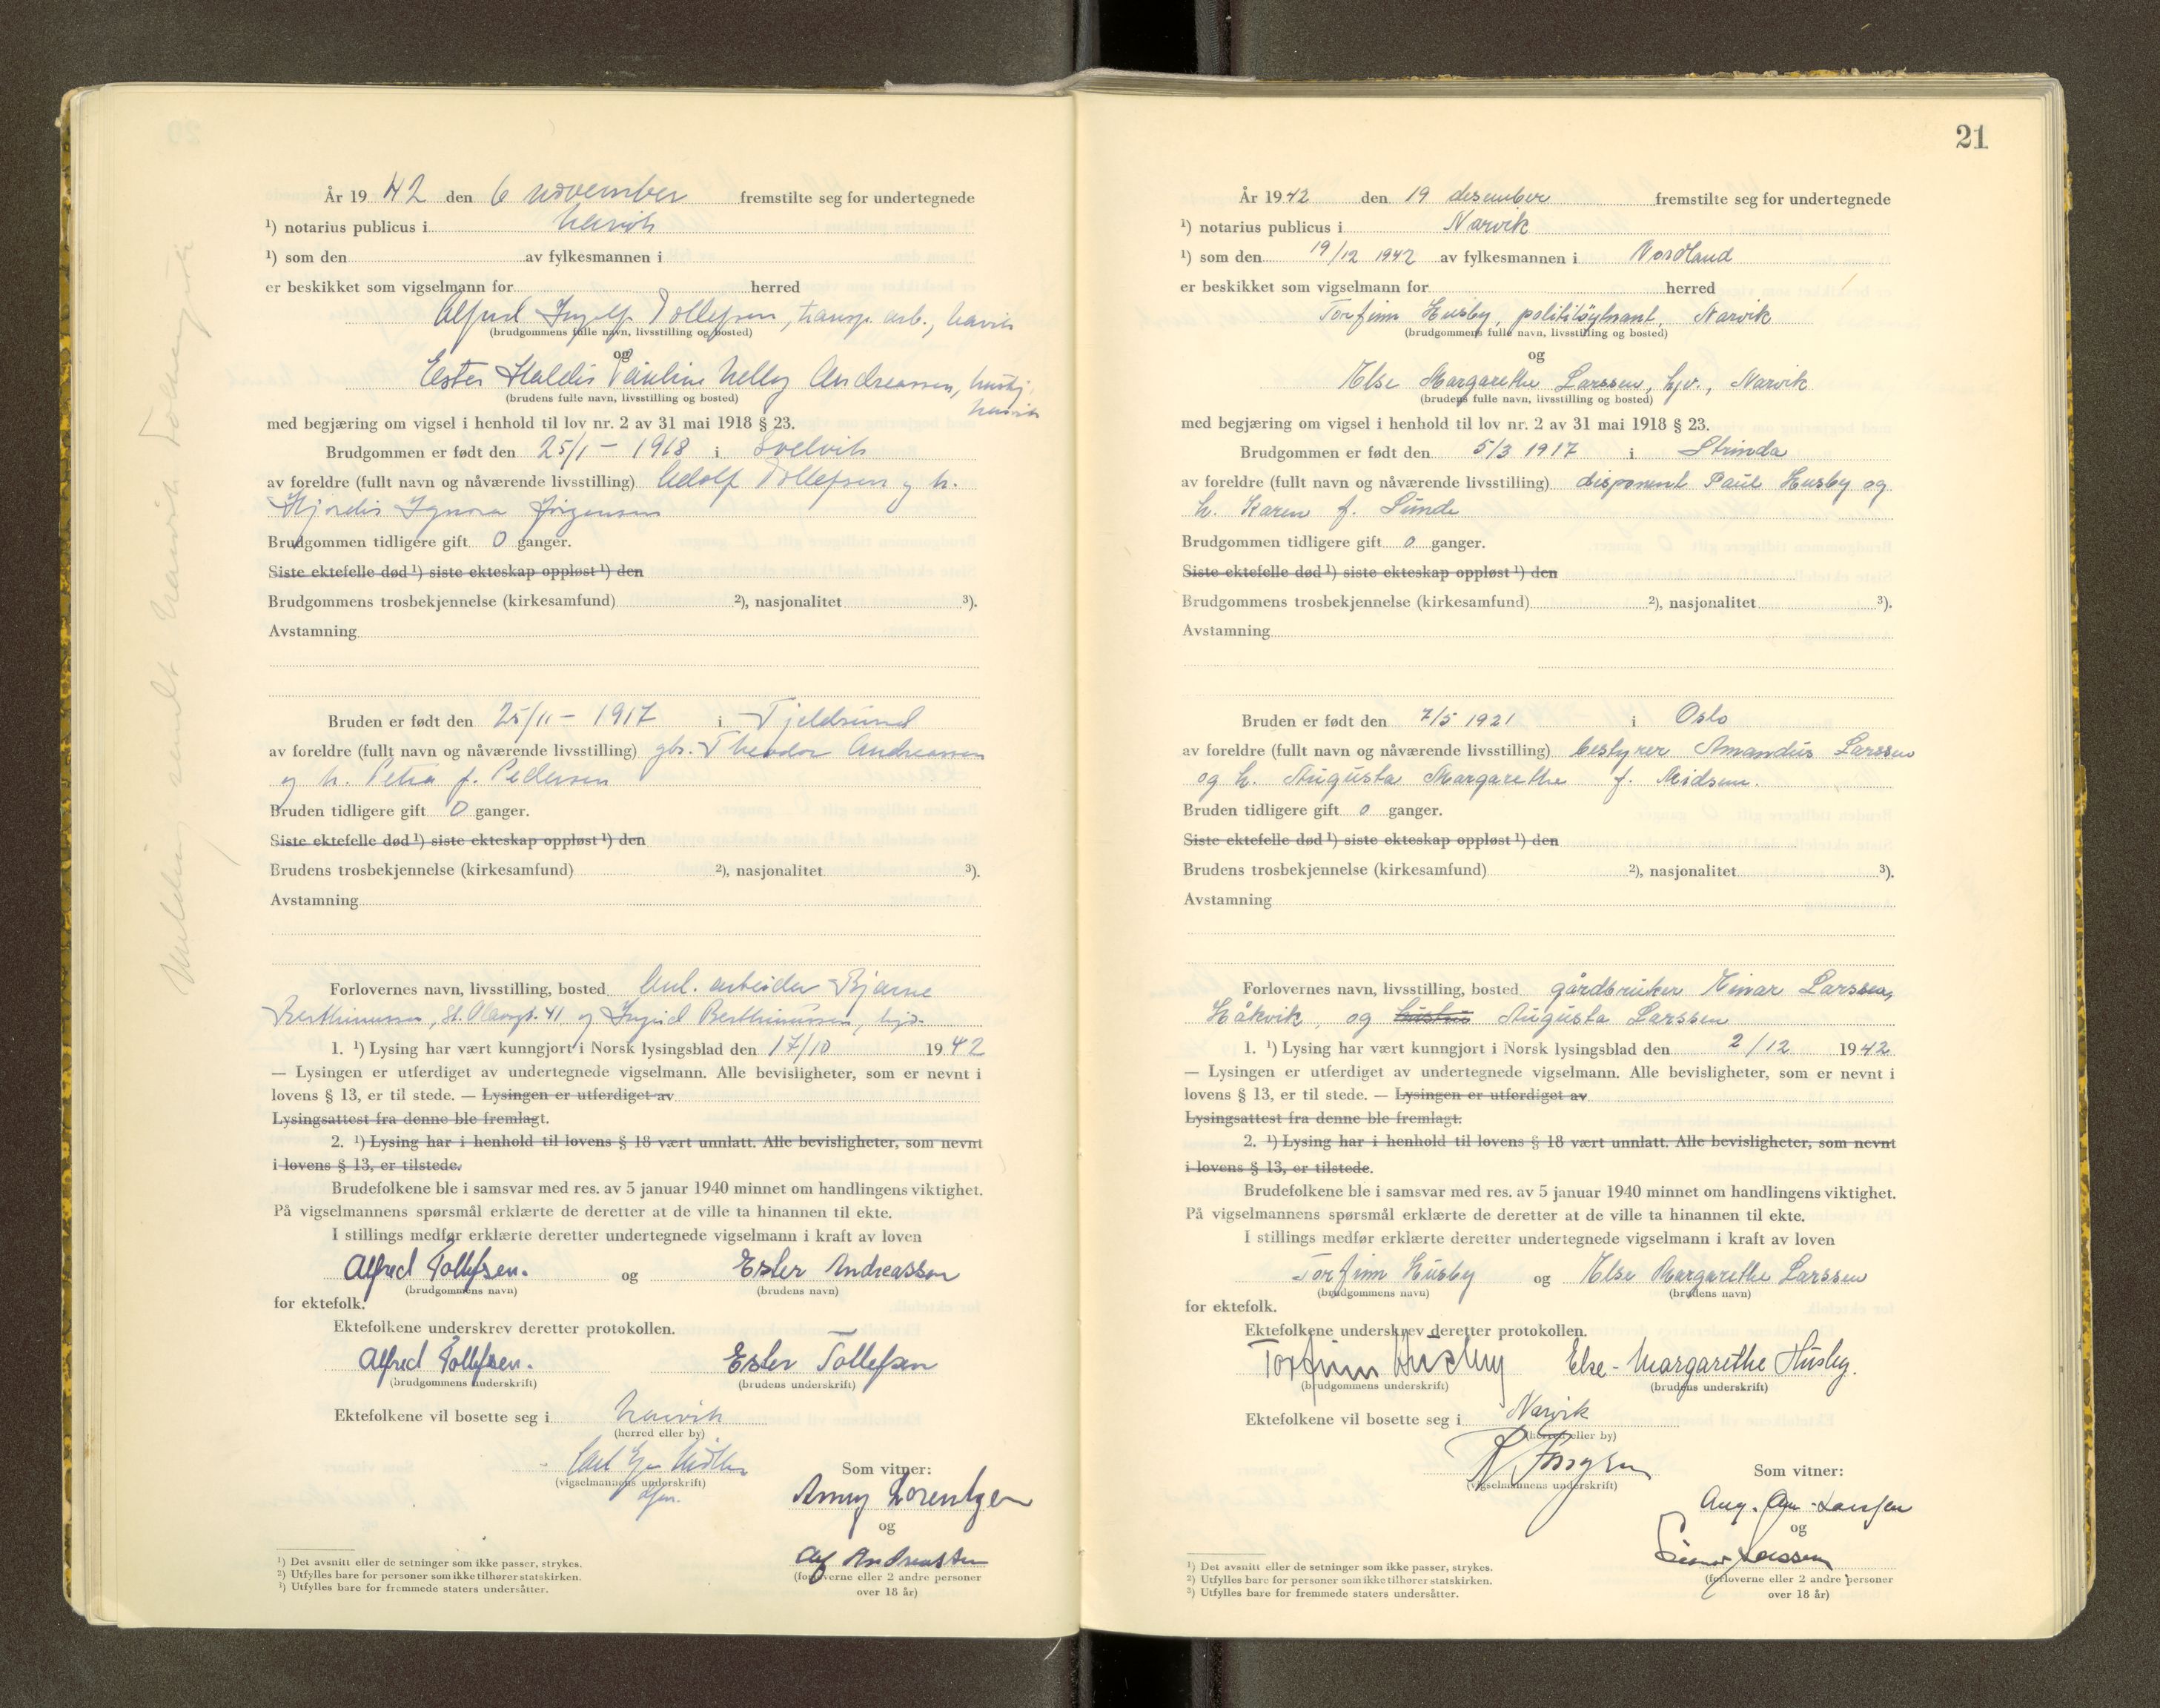 År 1942 den 6 november fremstilte seg for undertegnede
¹) notarius publicus i Narvik
¹) som den av fylkesmannen i
er beskikket som vigselmann for herred
Alfred Ingolf Tollefsen, transp. arb., Narvik
(brudgommens fulle navn, livsstilling og bosted)
og
Ester Haldis Pauline Nelly Andreassen, hushj.,
(brudens fulle navn, livsstilling og bosted) Narvik
med begjæring om vigsel i henhold til lov nr. 2 av 31 mai 1918 § 23.
Brudgommen er født den 25/1 - 1918 i Svelvik
av foreldre (fullt navn og nåværende livsstilling) Adolf Tollefsen og h.
Hjørdis Jørgensen
Brudgommen tidligere gift 0 ganger.
Siste ektefelle død ¹) siste ekteskap oppløst ¹) den
Brudgommens trosbekjennelse (kirkesamfund) ²), nasjonalitet ³).
Avstamning
Bruden er født den 25/11 - 1917 i Tjeldsund
av foreldre (fullt navn og nåværende livsstilling) gbr. Theodor Andreassen
og h. Petra f. Pedersen
Bruden tidligere gift 0 ganger.
Siste ektefelle død ¹) siste ekteskap oppløst ¹) den
Brudens trosbekjennelse (kirkesamfund) ²), nasjonalitet ³).
Avstamning
Forlovernes navn, livsstilling, bosted Anl. arbeider Bjarne
Berthinussen, St. Olavsgt. 41 og Ingrid Berthinussen, hjv.
1. ¹) Lysing har vært kunngjort i Norsk lysingsblad den 17/10 1942
— Lysingen er utferdiget av undertegnede vigselmann. Alle bevisligheter, som er nevnt i
lovens § 13, er til stede. — Lysingen er utferdiget av
Lysingsattest fra denne ble fremlagt.
2. ¹) Lysing har i henhold til lovens § 18 vært unnlatt. Alle bevisligheter, som nevnt
i lovens § 13, er tilstede.
Brudefolkene ble i samsvar med res. av 5 januar 1940 minnet om handlingens viktighet.
På vigselmannens spørsmål erklærte de deretter at de ville ta hinannen til ekte.
I stillings medfør erklærte deretter undertegnede vigselmann i kraft av loven
Alfred Tollefsen. og Ester Andreassen
(brudgommens navn) (brudens navn)
for ektefolk.
Ektefolkene underskrev deretter protokollen.
Alfred Tollefsen. Ester Tollefsen
(brudgommens underskrift) (brudens underskrift)
Ektefolkene vil bosette seg i Narvik
(herred eller by)
(vigselmannens underskrift)
Som vitner:
Anny Lorentzen
og
Alf Andreassen
(forloverne eller 2 andre personer
over 18 år)
¹) Det avsnitt eller de setninger som ikke passer, strykes.
²) Utfylles bare for personer som ikke tilhører statskirken.
³) Utfylles bare for fremmede staters undersåtter.
Melding sendt Narvik Folkeregister
21
År 1942 den 19 desember fremstilte seg for undertegnede
¹) notarius publicus i Narvik
¹) som den 19/12 1942 av fylkesmannen i Nordland
er beskikket som vigselmann for herred
Torfinn Husby, politiløytnant, Narvik
(brudgommens fulle navn, livsstilling og bosted)
og
Else Margarethe Larssen, hjv., Narvik
(brudens fulle navn, livsstilling og bosted)
med begjæring om vigsel i henhold til lov nr. 2 av 31 mai 1918 § 23.
Brudgommen er født den 5/3 1917 i Strinda
av foreldre (fullt navn og nåværende livsstilling) disponent Paul Husby og
h. Karen f. Sunde
Brudgommen tidligere gift 0 ganger.
Siste ektefelle død ¹) siste ekteskap oppløst ¹) den
Brudgommens trosbekjennelse (kirkesamfund) ²), nasjonalitet ³).
Avstamning
Bruden er født den 7/5 1921 i Oslo
av foreldre (fullt navn og nåværende livsstilling) bestyrer Amandus Larssen
og h. Augusta Margarethe f. Nidsen.
Bruden tidligere gift 0 ganger.
Siste ektefelle død ¹) siste ekteskap oppløst ¹) den
Brudens trosbekjennelse (kirkesamfund) ²), nasjonalitet ³).
Avstamning
Forlovernes navn, livsstilling, bosted gårdbruker Einar Larssen,
Håkvik, og hustru Augusta Larssen
1. ¹) Lysing har vært kunngjort i Norsk lysingsblad den 2/12 1942
— Lysingen er utferdiget av undertegnede vigselmann. Alle bevisligheter, som er nevnt i
lovens § 13, er til stede. — Lysingen er utferdiget av
Lysingsattest fra denne ble fremlagt.
2. ¹) Lysing har i henhold til lovens § 18 vært unnlatt. Alle bevisligheter, som nevnt
i lovens § 13, er tilstede.
Brudefolkene ble i samsvar med res. av 5 januar 1940 minnet om handlingens viktighet.
På vigselmannens spørsmål erklærte de deretter at de ville ta hinannen til ekte.
I stillings medfør erklærte deretter undertegnede vigselmann i kraft av loven
Torfinn Husby og Else Margarethe Larssen
(brudgommens navn) (brudens navn)
for ektefolk.
Ektefolkene underskrev deretter protokollen.
Torfinn Husby Else-Margarethe Husby.
(brudgommens underskrift) (brudens underskrift)
Ektefolkene vil bosette seg i Narvik
(herred eller by)
(vigselmannens underskrift)
Som vitner:
Aug. Larssen
og
Einar Larssen
(forloverne eller 2 andre personer
over 18 år)
¹) Det avsnitt eller de setninger som ikke passer, strykes.
²) Utfylles bare for personer som ikke tilhører statskirken.
³) Utfylles bare for fremmede staters undersåtter.